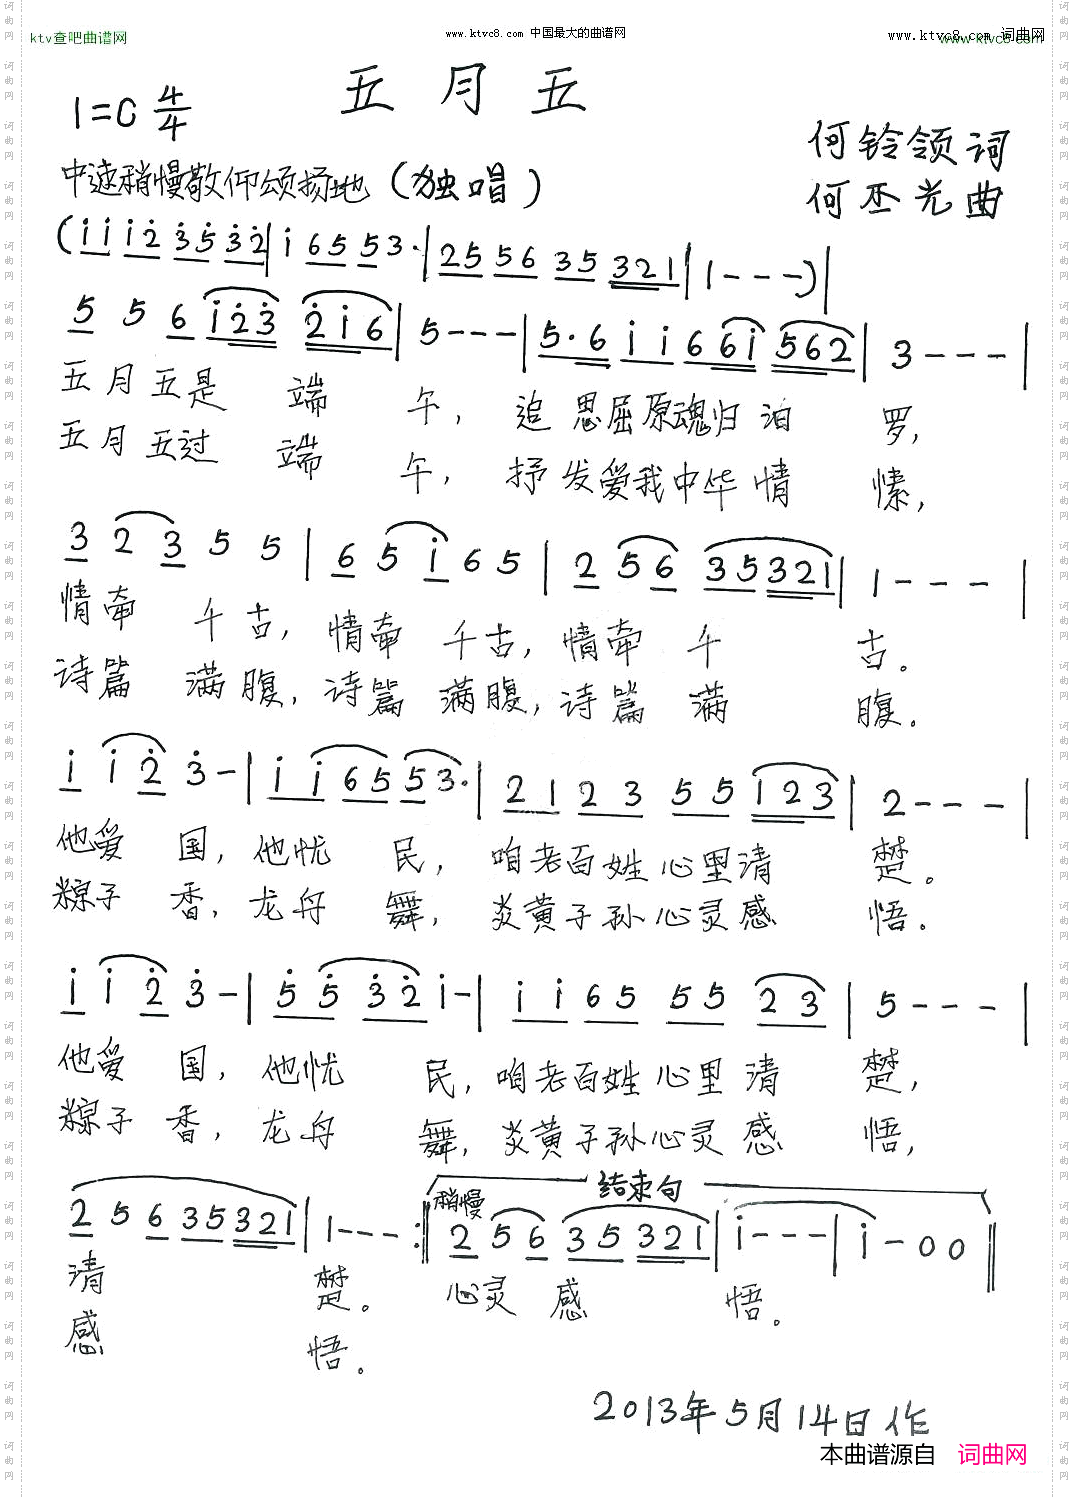 ktv查吧曲谱网
www.ktvc8.com 中国最大的曲谱网
www.ktvc8.com 词曲网
五月五
1=C 4/4
何铃领词
中速稍慢敬仰颂扬地(独唱)
何丕光曲
(i i i 2 3 5 3 2 | i 6 5 5 3· | 2 5 5 6 3 5 3 2 1 | 1 - - -) |
5 5 6 i 2 3 2 i 6 | 5 - - - | 5· 6 i i 6 6 i 5 6 2 | 3 - - - |
五月五是 端 午, 追思屈原魂归汨 罗,
五月五过 端 午, 抒发爱我中华情 愫,
3 2 3 5 5 | 6 5 i 6 5 | 2 5 6 3 5 3 2 1 | 1 - - - |
情牵 千古, 情牵 千古, 情牵 千 古。
诗篇 满腹, 诗篇 满腹, 诗篇 满 腹。
i i 2 3 - | i i 6 5 5 3· | 2 1 2 3 5 5 1 2 3 | 2 - - - |
他爱 国, 他忧 民, 咱老百姓心里清 楚。
粽子 香, 龙舟 舞, 炎黄子孙心灵感 悟。
i i 2 3 - | 5 5 3 2 i - | i i 6 5 5 5 2 3 | 5 - - - |
他爱 国, 他忧 民, 咱老百姓心里清 楚,
粽子 香, 龙舟 舞, 炎黄子孙心灵感 悟,
稍慢 结束句
2 5 6 3 5 3 2 1 | 1 - - - :‖ 2 5 6 3 5 3 2 1 | i - - - | i - 0 0 ‖
清 楚。 心灵 感 悟。
感 悟。
2013年5月14日作
本曲谱源自 词曲网